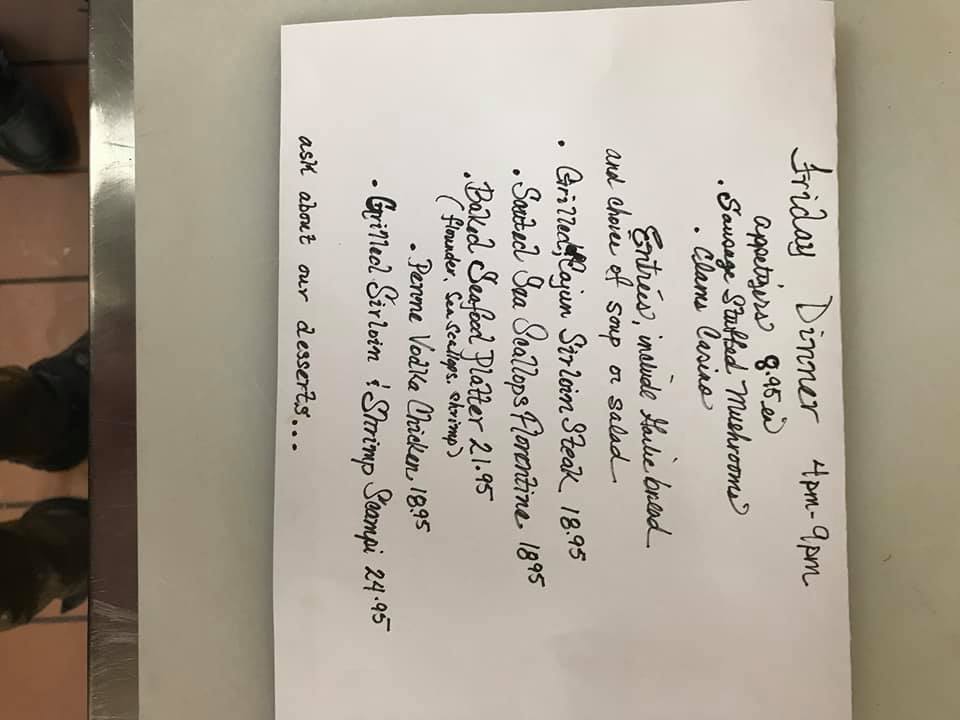 Friday Dinner 4pm-9pm
appetizers 8.95 ea
• Sausage Stuffed Mushrooms
• Clams Casino
Entrées, include Garlic bread
and choice of soup or salad
• Grilled Cajun Sirloin Steak 18.95
• Sauted Sea Scallops Florentine 18 95
• Baked Seafood Platter 21.95
(flounder, sea scallops, shrimp)
• Penne Vodka Chicken 18.95
• Grilled Sirloin & Shrimp Scampi 24.95
ask about our desserts...